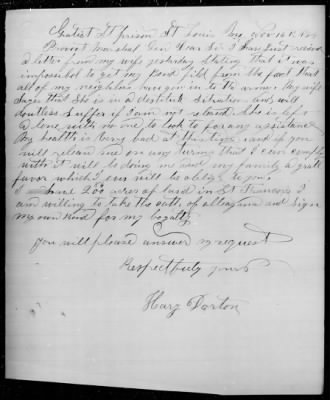 Gratiot St prison St Louis Mo Nov 16th 1864
Provost Marshal Gen Dear Sir I have just received
a letter from my wife yesterday stating that it was
impossibol to get my bond fild from the fact that
all of my neighbors have gon in to the army. My wife
Says that She is in a destitute Situation and will
doutless Suffer if I am not releasd. She is left
a lone with no one to look to for any assistance
My health is very bad at this time and if you
will releas me on any turms that I can comply
with it will be doing me and my family a grate
favor which I em will be oblige to you
I have 200 acres of land in St Francois I
am willing to take the oath of allegiance and sign
my own bond for my loyalty
you will please answer my request
Respectfuly yours
Harz Darton